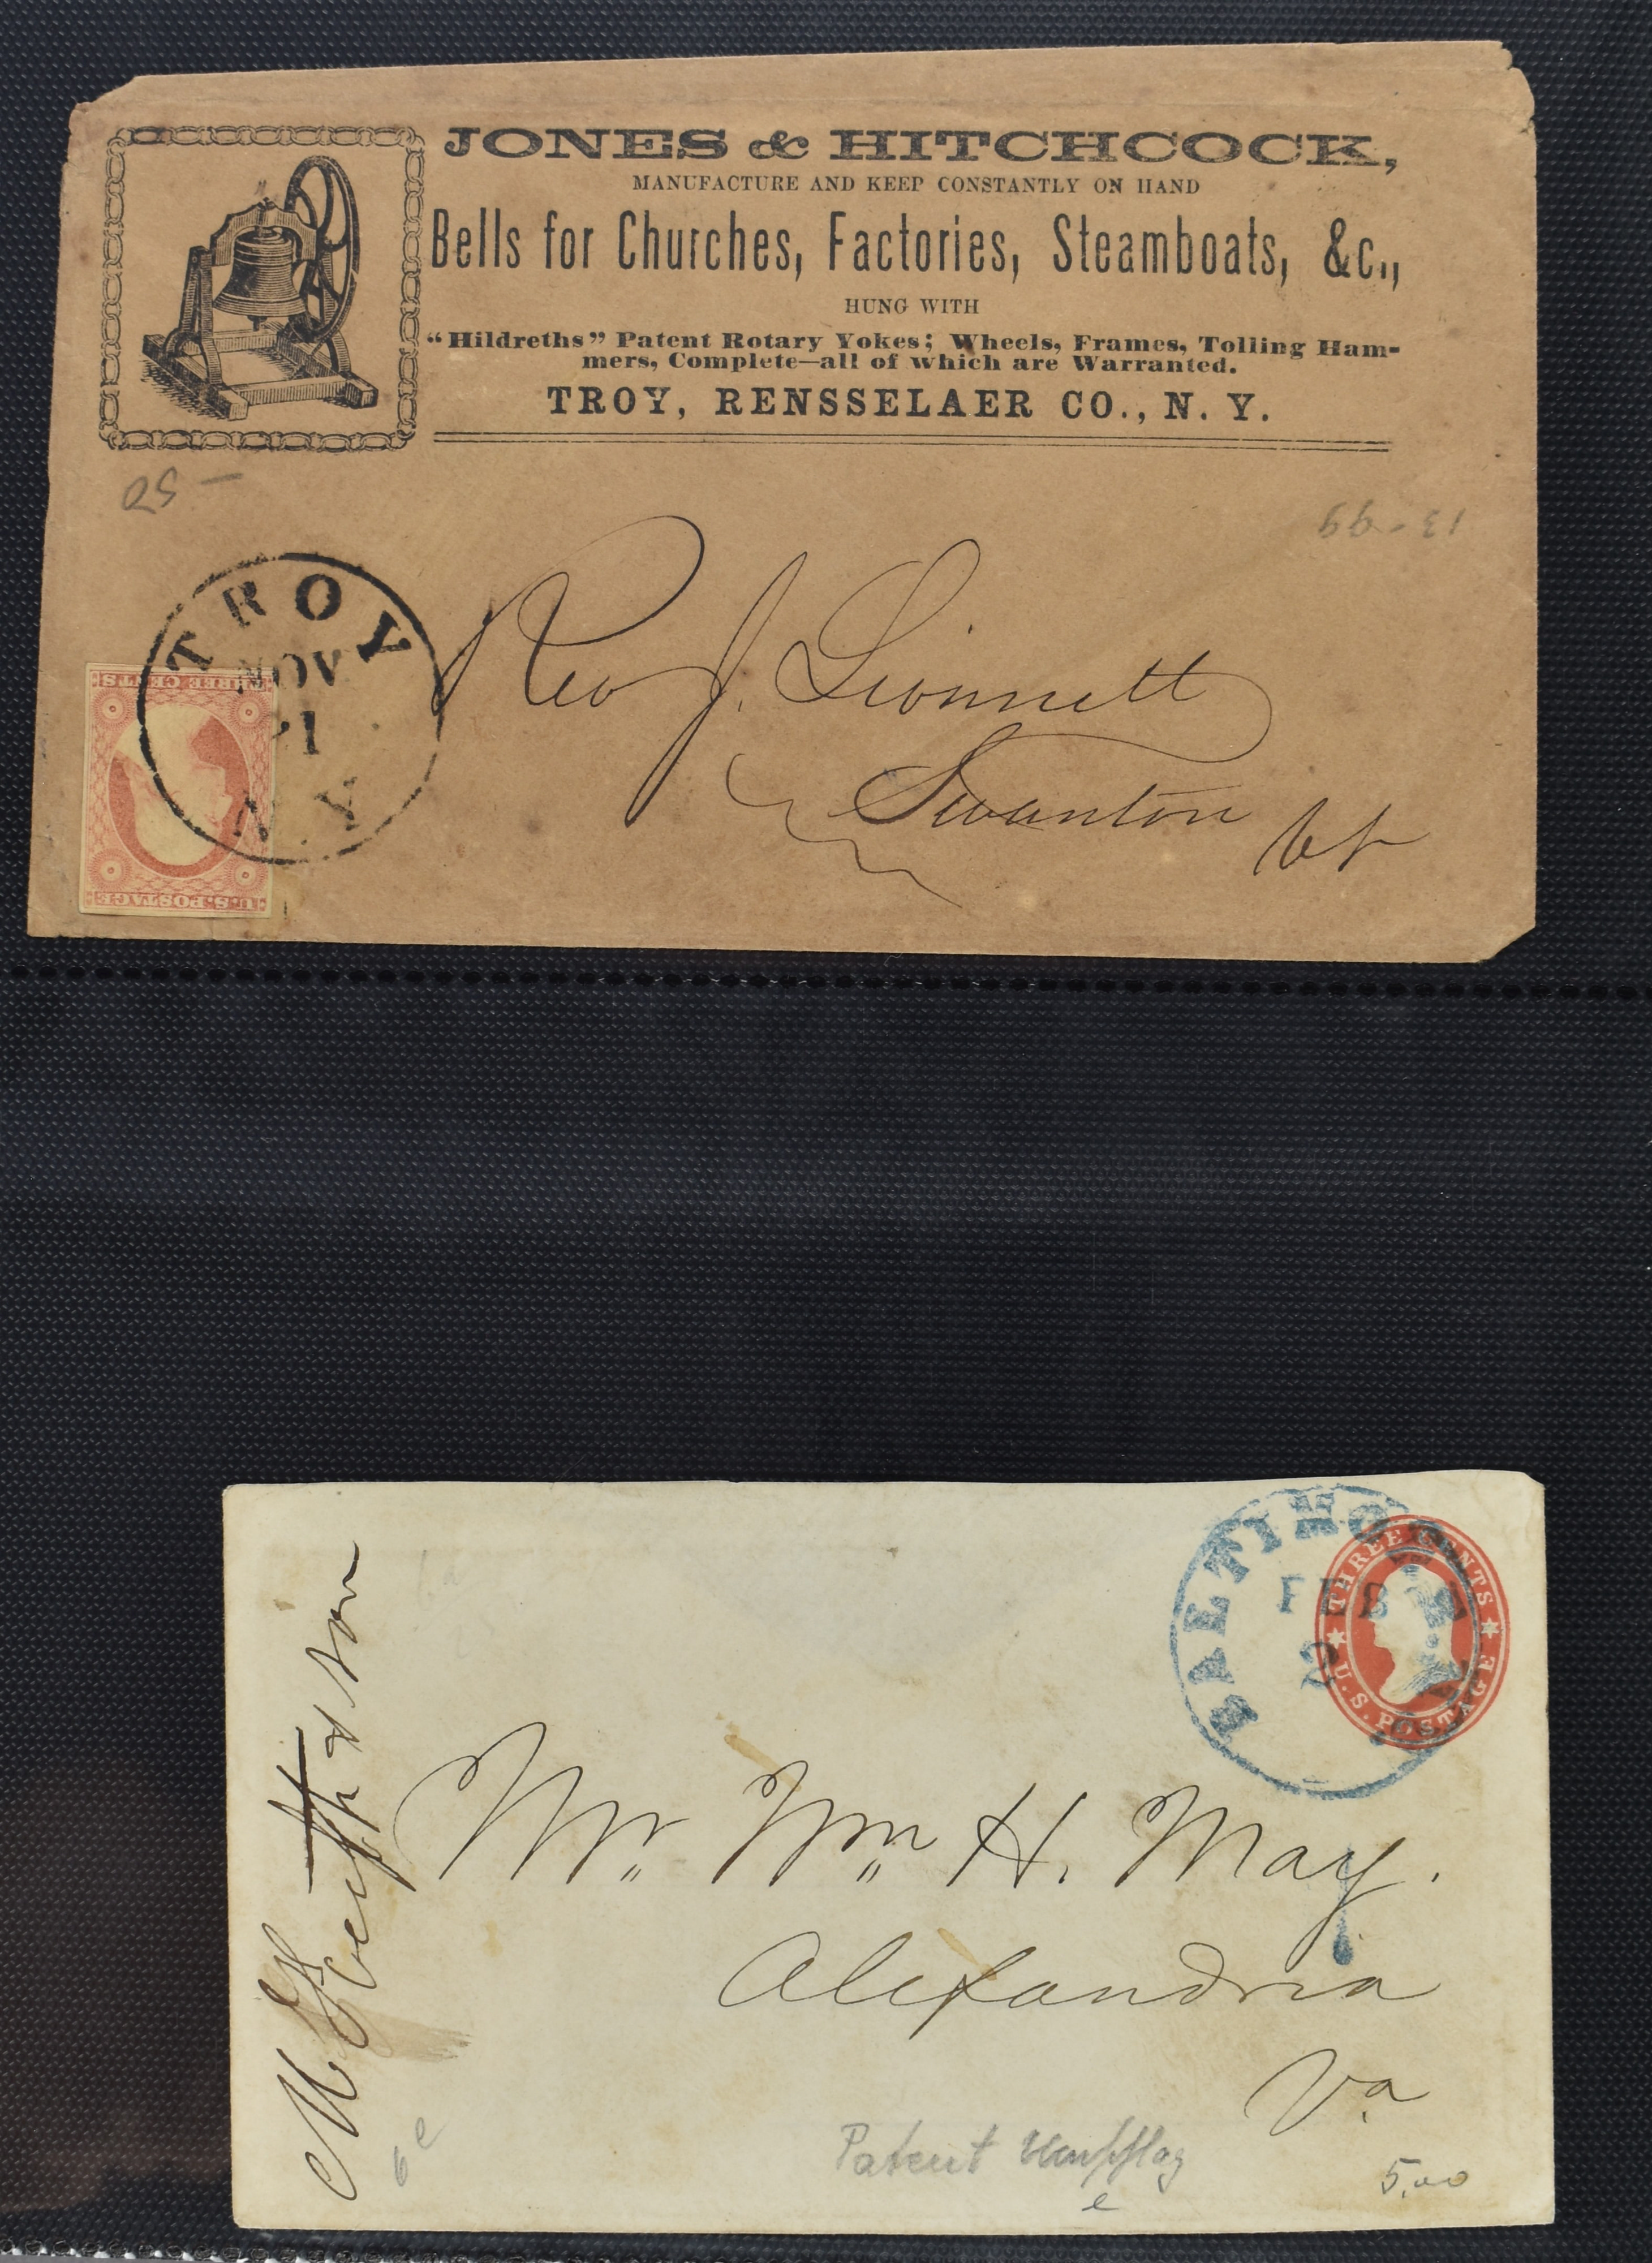 JONES & HITCHCOCK,
MANUFACTURE AND KEEP CONSTANTLY ON HAND
Bells for Churches, Factories, Steamboats, &c.,
HUNG WITH
"Hildreths" Patent Rotary Yokes; Wheels, Frames, Tolling Ham-
mers, Complete—all of which are Warranted.
TROY, RENSSELAER CO., N. Y.
13-99
TROY
NOV
N.Y
THREE CENTS
U.S. POSTAGE
Rev J.
Swanton Vt
BALTIMO
FEB
2
THREE CENTS
U.S. POSTAGE
& Son
Mr. Wm H. May.
Alexandria
Va
Patent
5.00